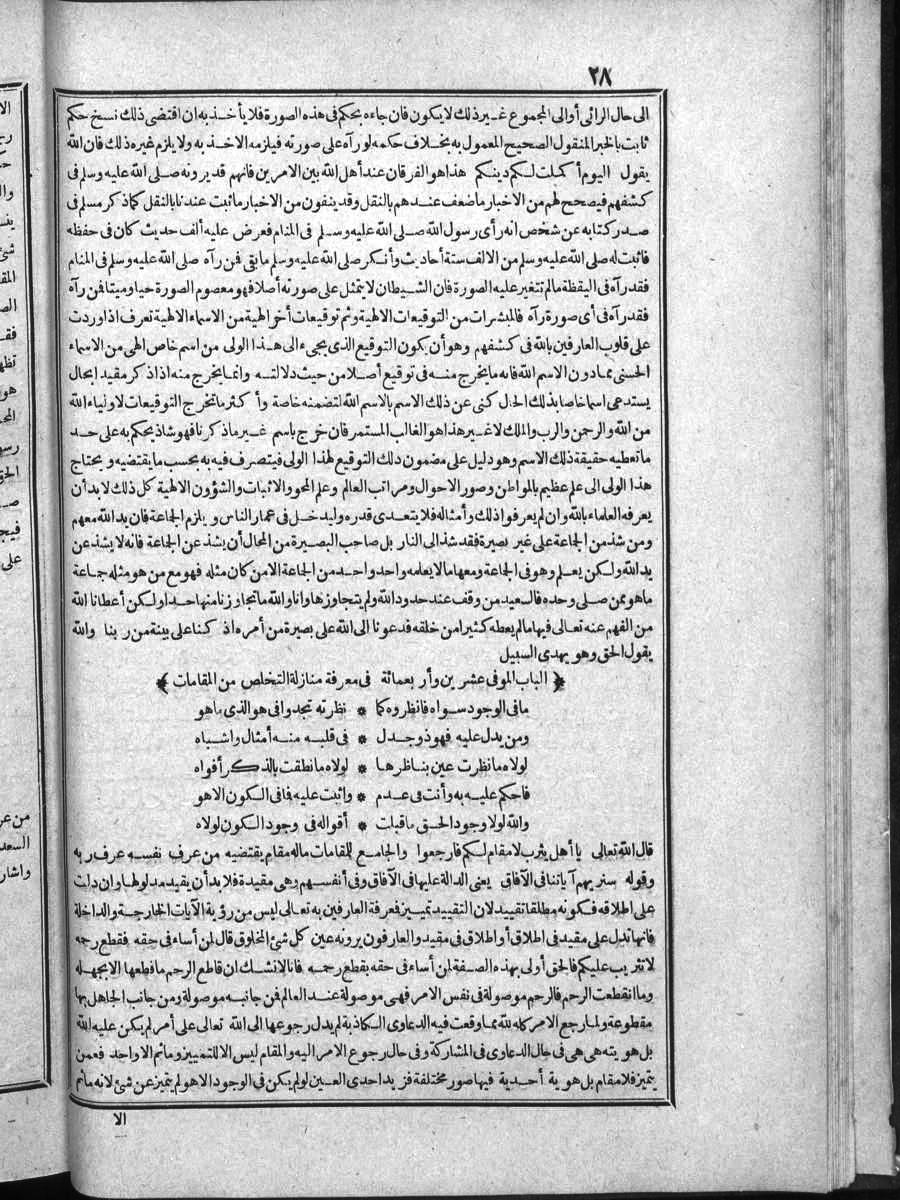 ٢٨
الى حال الرائى أوالى المجموع غير ذلك لا يكون فان جاءه بحكم فى هذه الصورة فلا يأخذ به ان اقتضى ذلك نسخ حكم
ثابت بالخبر المنقول الصحيح المعمول به بخلاف حكمه لو رآه على صورته فيلزمه الاخذ به ولا يلزم غيره ذلك فان الله
يقول اليوم أكملت لكم دينكم هذا هو الفرقان عند أهل الله بين الامرين فانهم قد يرونه صلى الله عليه وسلم فى
كشفهم فيصحح لهم من الاخبار ما ضعف عندهم بالنقل وقد ينفون من الاخبار ما ثبت عندنا بالنقل كما ذكر مسلم فى
صدر كتابه عن شخص انه رأى رسول الله صلى الله عليه وسلم فى المنام فعرض عليه ألف حديث كان فى حفظه
فاثبت له صلى الله عليه وسلم من الالف ستة أحاديث وأنكر صلى الله عليه وسلم ما بقى فمن رآه صلى الله عليه وسلم فى المنام
فقد رآه فى اليقظة ما لم تتغير عليه الصورة فان الشيطان لا يتمثل على صورته أصلا فهو معصوم الصورة حيا وميتا فمن رآه
فقد رآه فى أى صورة رآه فالمبشرات من التوقيعات الالهية وثم توقيعات أخر الهية من الاسماء الالهية تعرف اذا وردت
على قلوب العارفين بالله فى كشفهم وهو أن يكون التوقيع الذى يجىء الى هذا الولى من اسم خاص الهى من الاسماء
الحسنى مما دون الاسم الله فانه ما يخرج منه فى توقيع أصلا من حيث دلالته وانما يخرج منه اذا ذكر مقيد ابحال
يستدعى اسما خاصا بذلك الحال كنى عن ذلك الاسم بالاسم الله لتضمنه خاصة وأكثر ما تخرج التوقيعات لاولياء الله
من الله والرحمن والرب والملك لا غير هذا هو الغالب المستمر فان خرج باسم غير ما ذكرنا فهو شاذ يحكم به على حد
ما تعطيه حقيقة ذلك الاسم وهو دليل على مضمون ذلك التوقيع لهذا الولى فيتصرف فيه به بحسب ما يقتضيه ويحتاج
هذا الولى الى علم عظيم بالمواطن وصور الاحوال ومراتب العالم وعلم المحو والاثبات والشؤون الالهية كل ذلك لابد أن
يعرفه العلماء بالله وان لم يعرفوا ذلك وأمثاله فلا يتعدى قدره وليدخل فى غمار الناس ويلزم الجاعة فان يد الله معهم
ومن شذ من الجاعة على غير بصيرة فقد شذ الى النار بل صاحب البصيرة من المحال أن يشذ عن الجاعة فانه لا يشذ عن
يد الله ولكن يعلم وهو فى الجاعة ومعها ما لا يعلمه واحد واحد من الجاعة الا من كان مثله فهو مع من هو مثله جماعة
ما هو ممن صلى وحده فالسعيد من وقف عند حدود الله ولم يتجاوزها وانا والله ما تجاوزنا منها حدا ولكن أعطانا الله
من الفهم عنه تعالى فيها ما لم يعطه كثيرا من خلقه فدعونا الى الله على بصيرة من أمره اذ كنا على بينة من ربنا والله
يقول الحق وهو يهدى السبيل
﴿ الباب الموفى عشرين وأربعمائة فى معرفة منازلة التخلص من المقامات ﴾
ما فى الوجود سواه فانظروه كما * نظرته تجدوا فى هو الذى ما هو
ومن يدل عليه فهو ذو جدل * فى قلبه منه أمثال واشباه
لولاه ما نظرت عين بناظرها * لولاه ما نطقت بالذكر أفواه
فاحكم عليه به وأنت فى عدم * واثبت عليه فما فى الكون الا هو
والله لولا وجود الحق ما قبلت * أقواله فى وجود الكون لولاه
قال الله تعالى يا أهل يثرب لا مقام لكم فارجعوا والجامع للمقامات ماله مقام يقتضيه من عرف نفسه عرف ربه
وقوله سنريهم آياتنا فى الآفاق يعنى الدالة عليها فى الآفاق وفى أنفسهم وهى مقيدة فلابد أن يقيد مدلولها وان دلت
على اطلاقه فكونه مطلقا تقييد لان التقييد تمييز فمعرفة العارفين به تعالى ليس من رؤية الآيات الخارجة والداخلة
فانها تدل على مقيد فى اطلاق أو اطلاق فى مقيد والعارفون يرونه عين كل شئ المخلوق قال لمن أساء فى حقه فقطع رحمه
لا تثريب عليكم فالحق أولى بهذه الصفة لمن أساء فى حقه بقطع رحمه فانا لا نشك ان قاطع الرحم ما قطعها الا بجهله
وما انقطعت الرحم فالرحم موصولة فى نفس الامر فهى موصولة عند العالم فمن جانبه موصولة ومن جانب الجاهل بها
مقطوعة ولما رجع الامر كله لله مما وقعت فيه الدعاوى الكاذبة لم يدل رجوعها الى الله تعالى على أمر لم يكن عليه الله
بل هويته هى هى فى حال الدعاوى فى المشاركة وفى حال رجوع الامر اليه والمقام ليس الا للتمييز وما ثم الا واحد فعمن
يتميز فلا مقام بل هوية أحدية فيها صور مختلفة فزيد احدى العين لو لم يكن فى الوجود الا هو لم يتميز عن شئ لانه ما ثم
الا